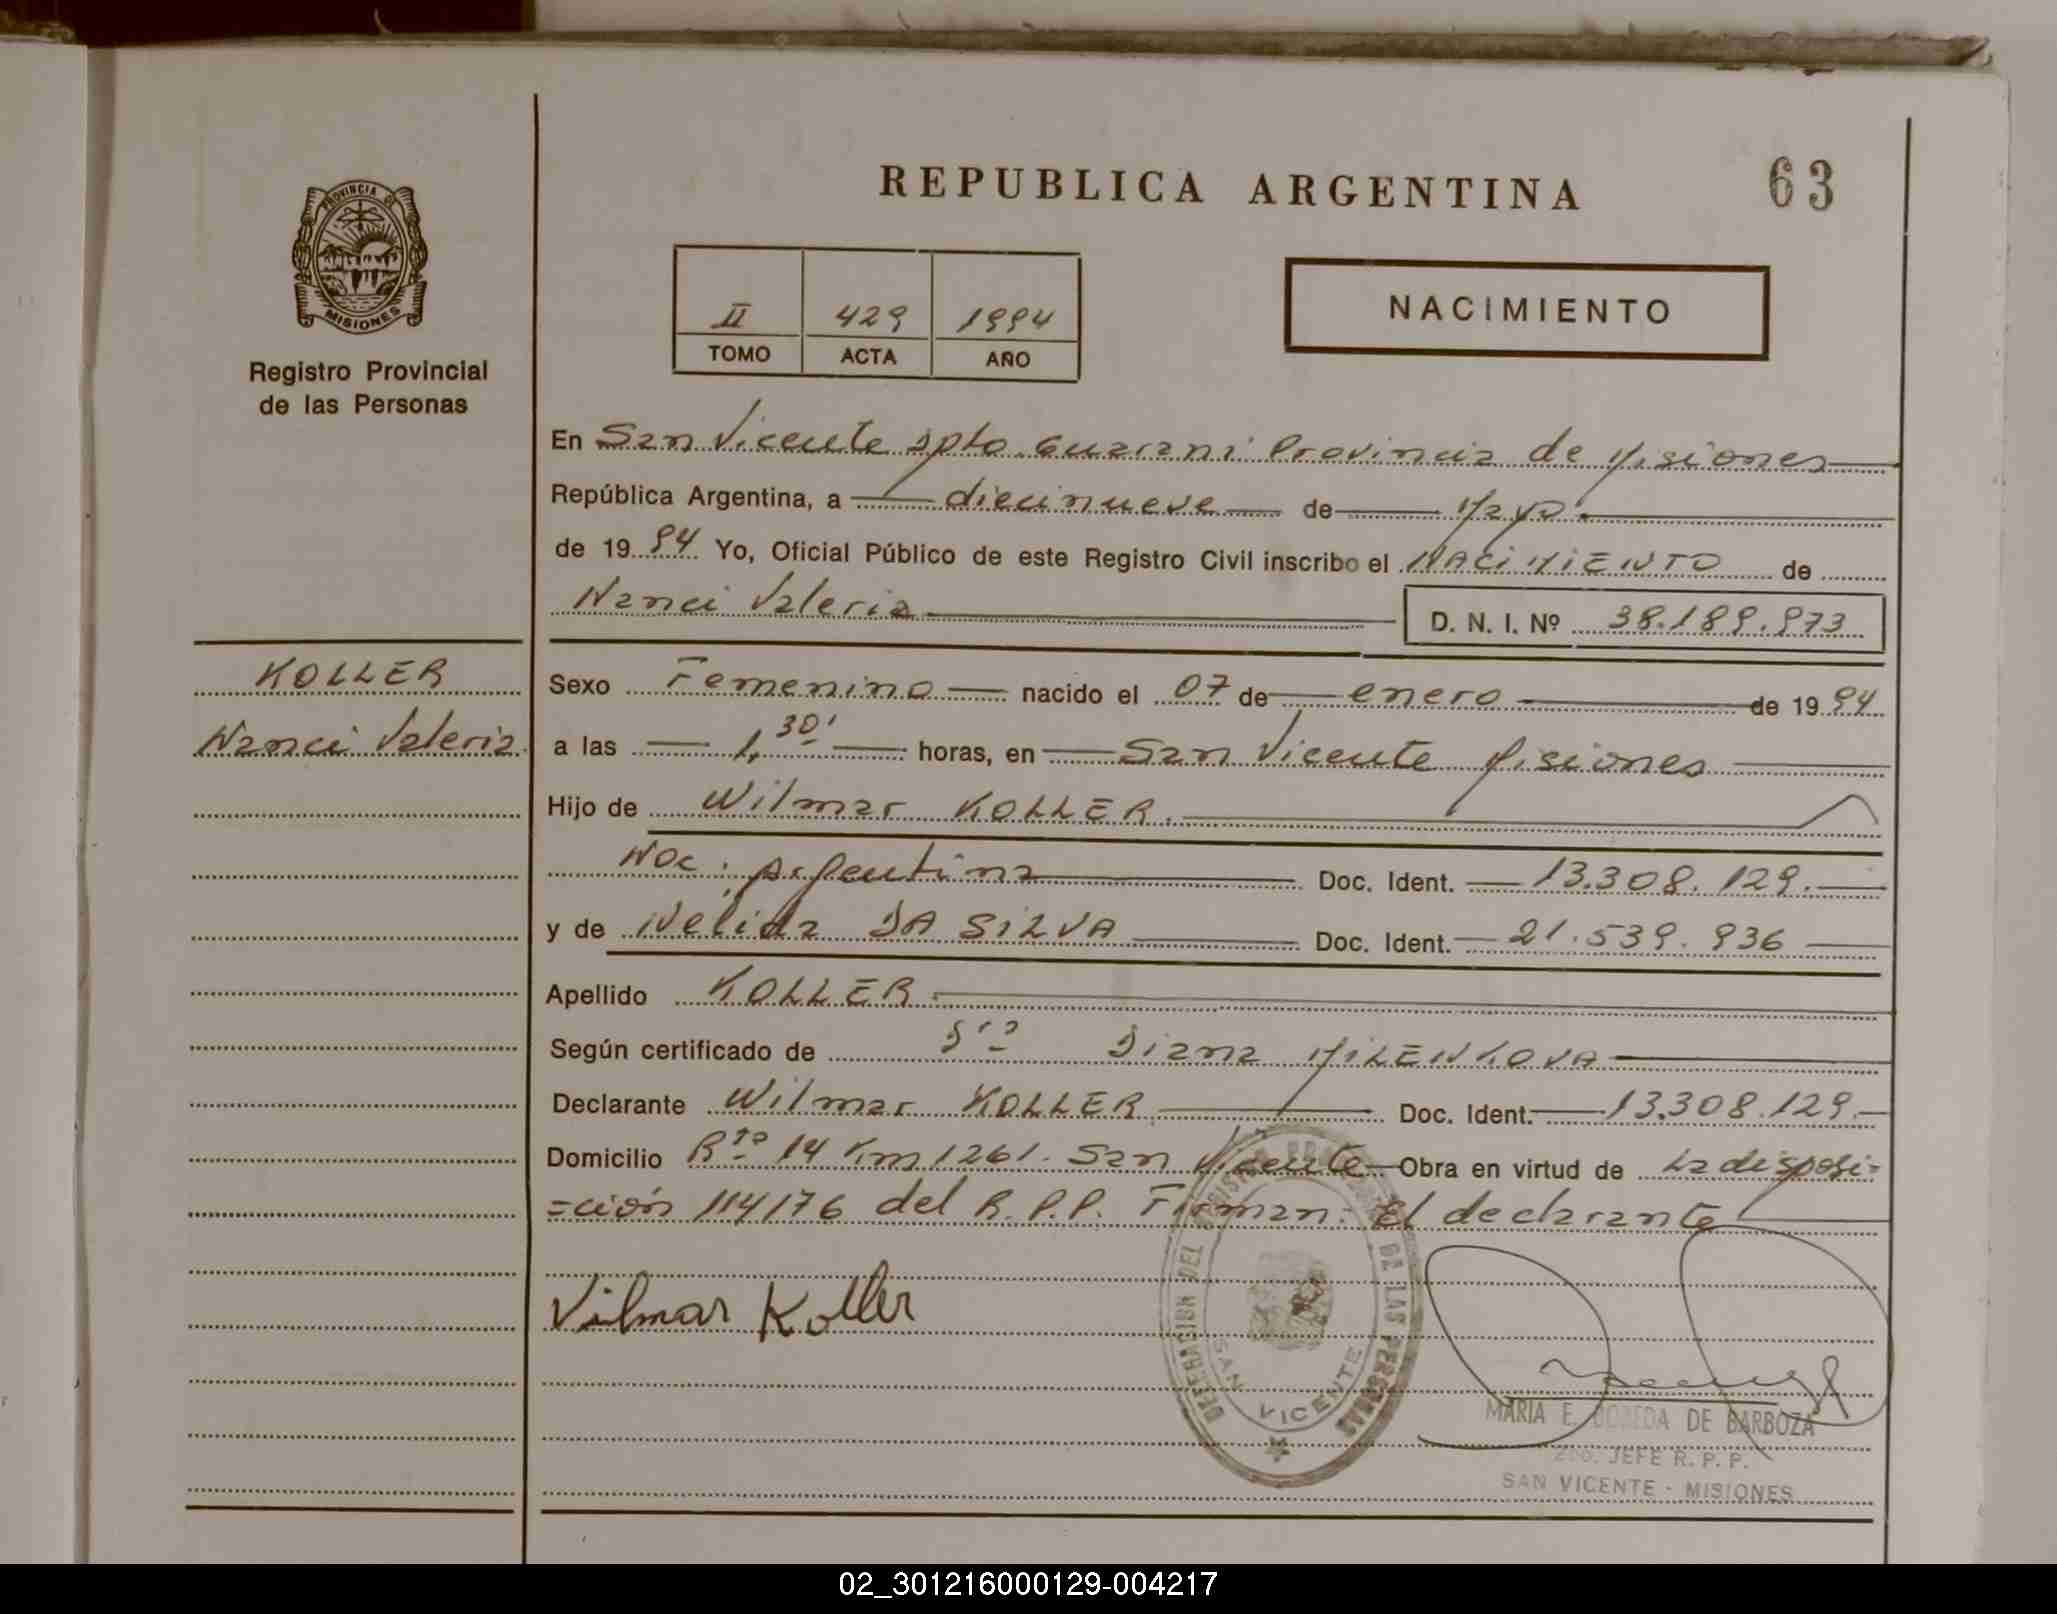 REPUBLICA ARGENTINA
63
PROVINCIA DE
MISIONES
Registro Provincial
de las Personas
II 429 1994
TOMO ACTA AÑO
NACIMIENTO
En San Vicente Dpto. Guarani Provincia de Misiones
República Argentina, a diecinueve de Mayo
de 1994 Yo, Oficial Público de este Registro Civil inscribo el NACIMIENTO de
Nanci Valeria D. N. I. Nº 38.189.973
KOLLER
Nanci Valeria
Sexo Femenino nacido el 07 de enero de 1994
a las 1,30' horas, en San Vicente Misiones
Hijo de Wilmar KOLLER.
Nac. Argentina Doc. Ident. 13.308.129.
y de Nelida DA SILVA Doc. Ident. 21.539.936
Apellido KOLLER.
Según certificado de Dra Diana MILENKOVA
Declarante Wilmar KOLLER Doc. Ident. 13.308.129.
Domicilio Rta 14 Km 1261. San Vicente Obra en virtud de La disposi=
=ción 114/76 del R.P.P. Firman: El declarante
Vilmar Koller
DEL REGISTRO DE LAS PERSONAS
SAN VICENTE
MARIA E. DE BARBOZA
2do. JEFE R. P. P.
SAN VICENTE - MISIONES
02_301216000129-004217